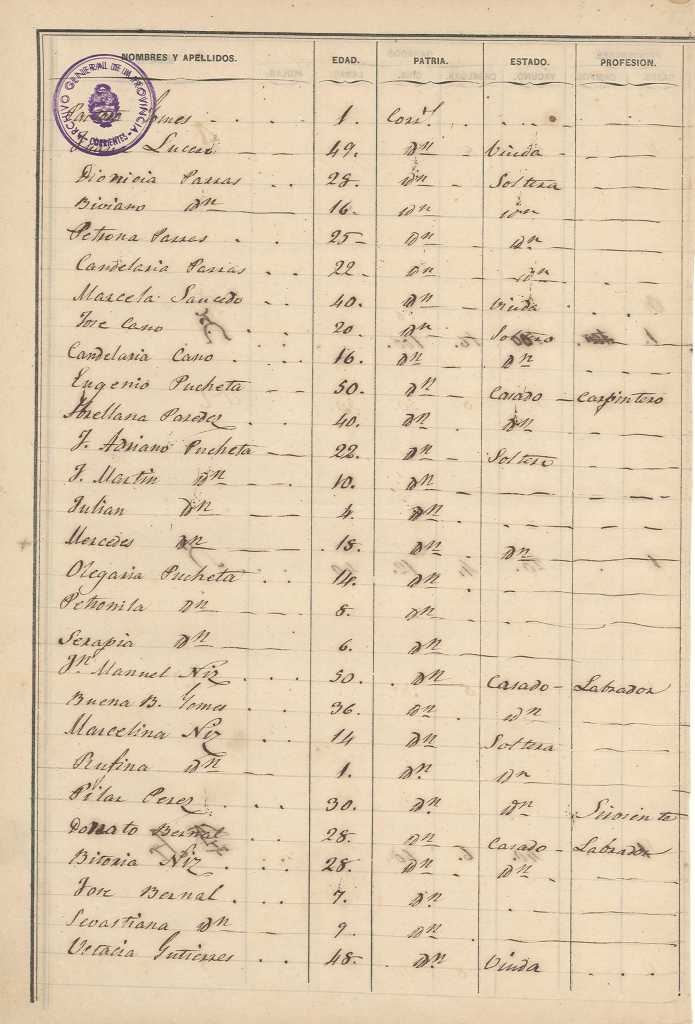 NOMBRES Y APELLIDOS. EDAD. PATRIA. ESTADO. PROFESION.
ARCHIVO GENERAL DE LA PROVINCIA CORRIENTES
Gomes 1. Corr.ˢ
Lucero 49. Dn Viuda
Dionicia Parras 28. Dn Soltera
Biviano Dn 16. Dn Dn
Petrona Parras 25 Dn Dn
Candelaria Parras 22 Dn Dn
Marcela Saucedo 40. Dn Viuda
Jose Cano 20. Dn Soltero
Candelaria Cano 16. Dn Dn
Eugenio Pucheta 50. Dn Casado Carpintero
Arellana Paredez 40. Dn Dn
J. Adriano Pucheta 22 Dn Soltero
J. Martin Dn 10. Dn
Julian Dn 4. Dn
Mercedes Dn 18. Dn Dn
Olegaria Pucheta 14. Dn
Petronila Dn 8. Dn
Serapia Dn 6. Dn
Jn Manuel Niz 50. Dn Casado Labrador
Buena B. Gomes 36. Dn Dn
Marcelina Niz 14 Dn Soltera
Rufina Dn 1. Dn Dn
Pilar Perez 30. Dn Dn Sirviente
Donato Bernal 28. Dn Casado Labrador
Bitoria Niz 28. Dn Dn
Jose Bernal 7. Dn
Sevastiana Dn 9. Dn
Gutierres 48. Dn Viuda